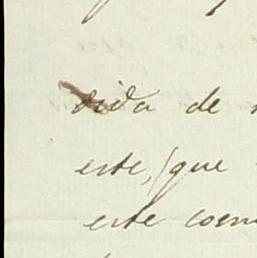 dida de
este, (que
este com